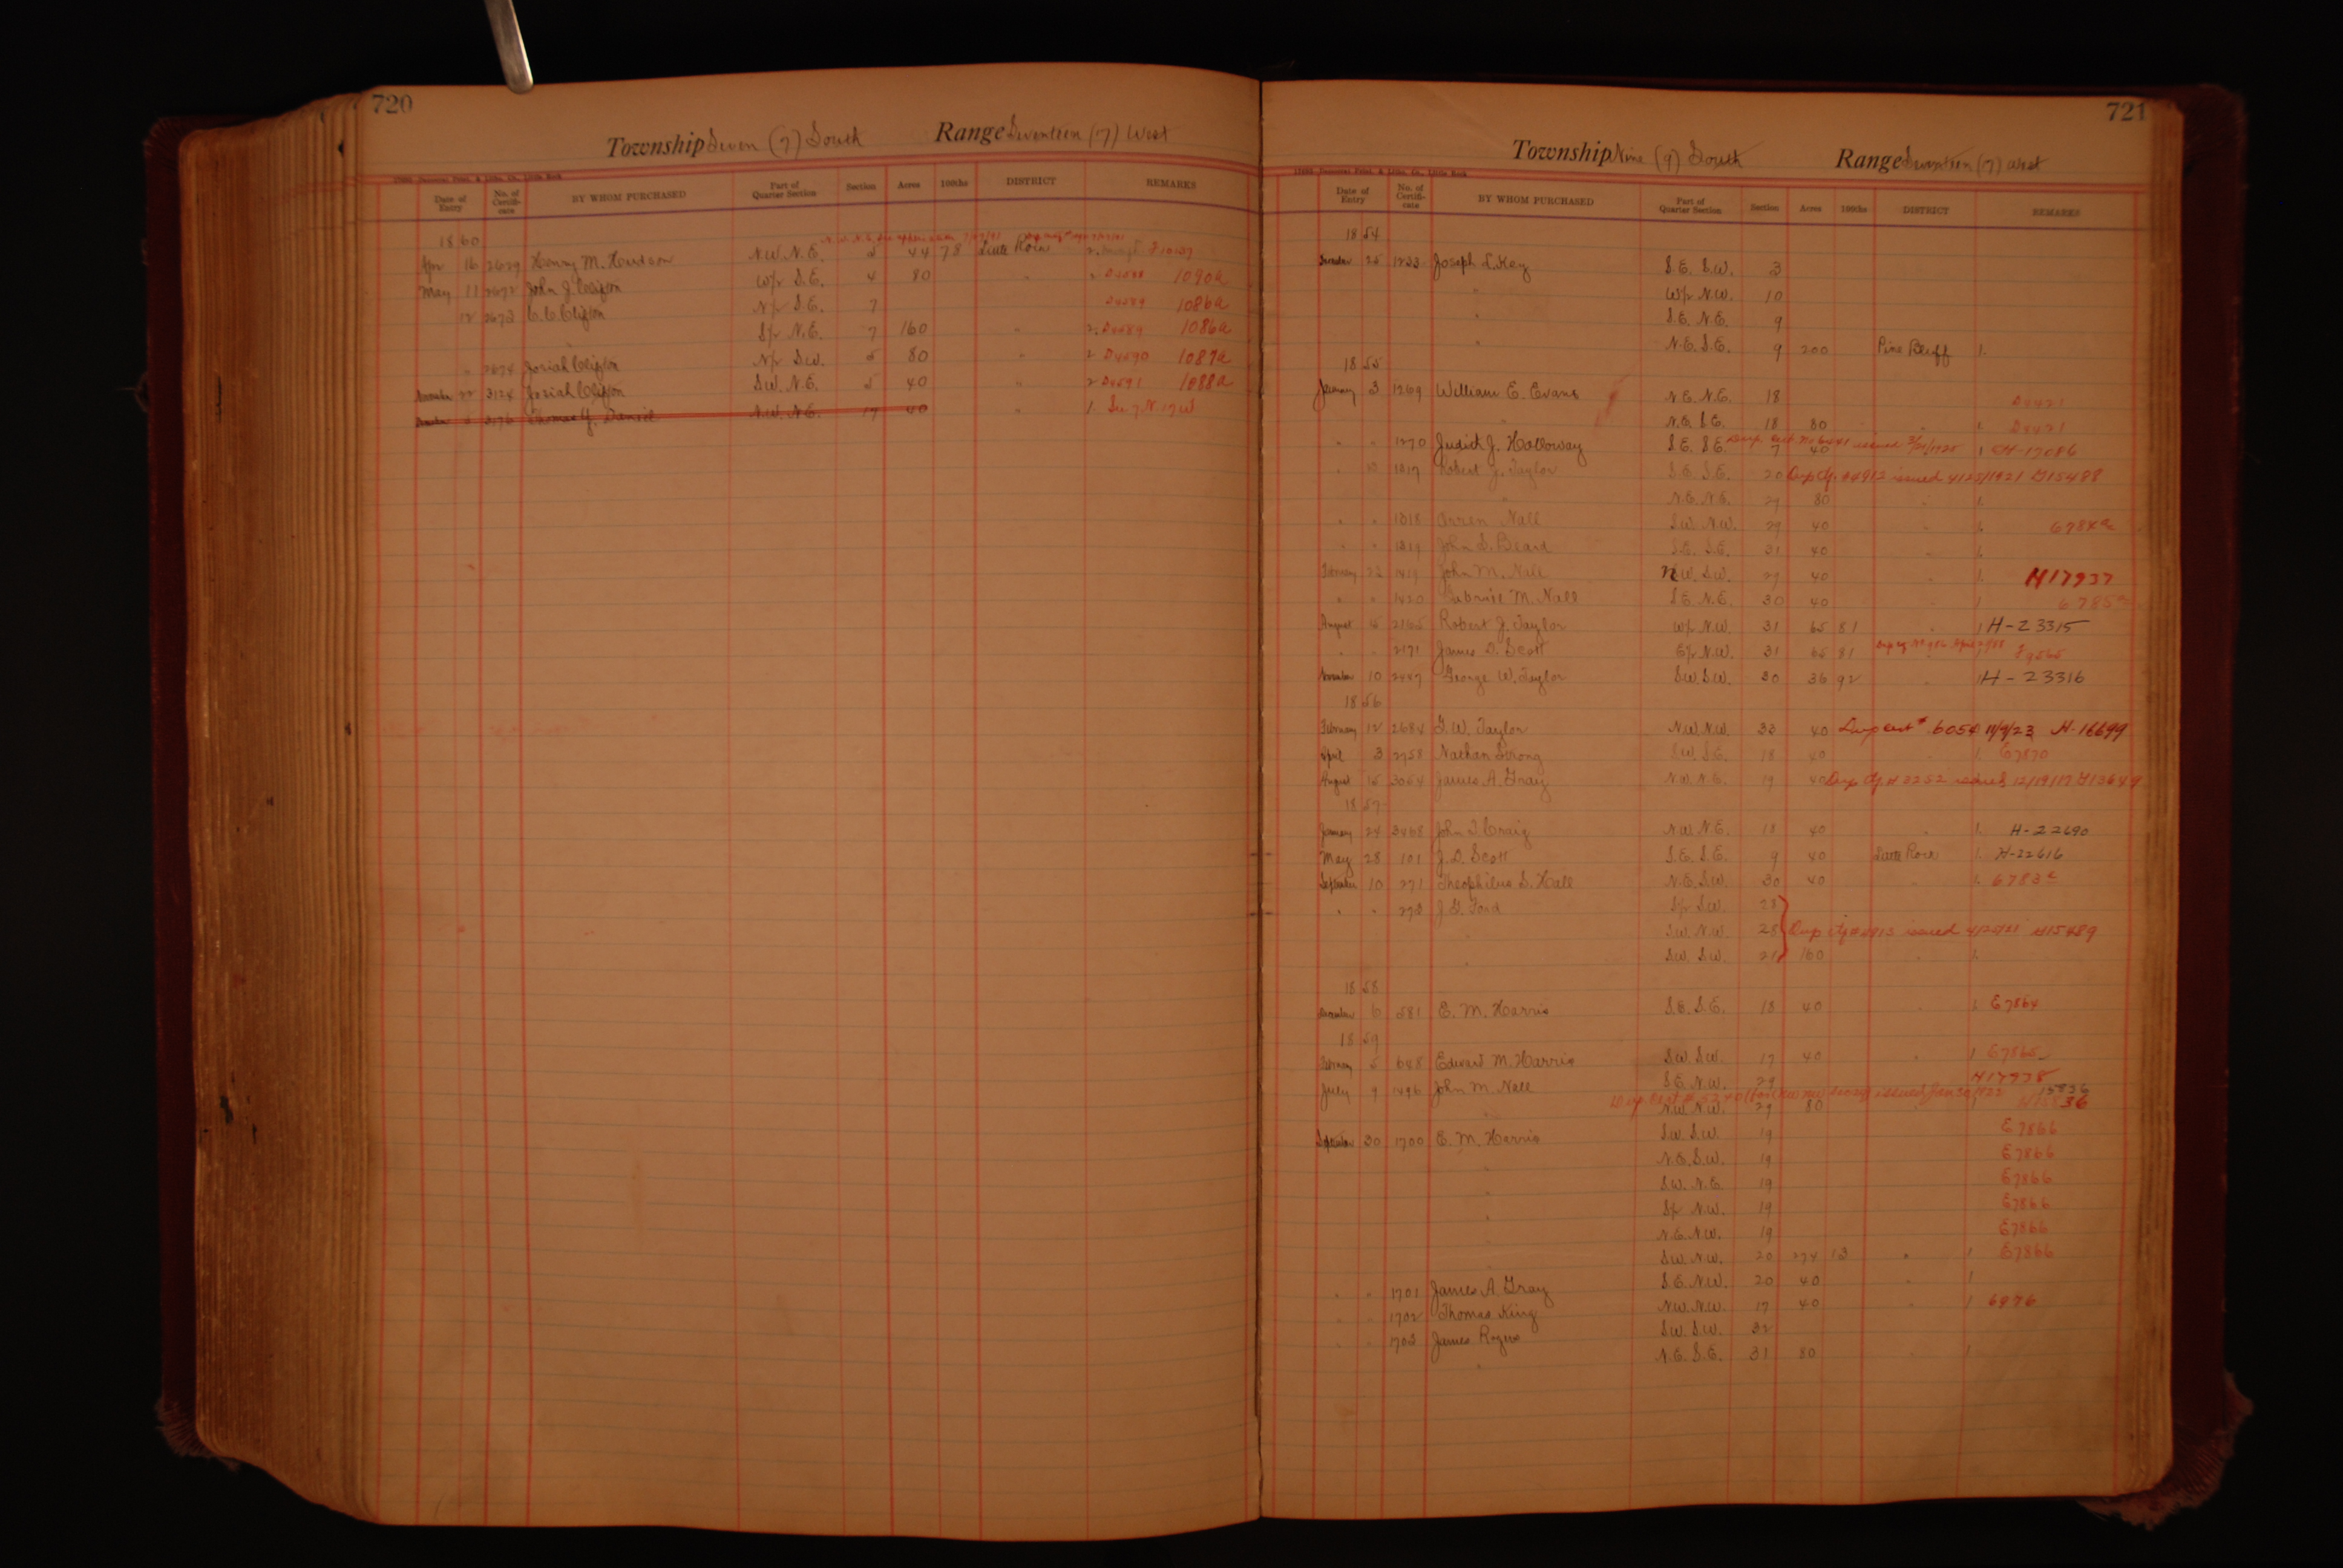 720
Township Seven (7) South Range Seventeen (17) West
Date of Entry No. of Certifi-cate BY WHOM PURCHASED Part of Quarter Section Section Acres 100ths DISTRICT REMARKS
1860
Apr 16 2629 Henry M. Hudson N.W. N.E. 5 44 78 Little Rock 2.
May 11 2672 John J. Clifton W/2 S.E. 4 80 " 1090a
12 2673 C. C. Clifton N/2 S.E. 7 D4589 1086a
S/2 N.E. 7 160 " 2. D4589 1086a
" 2674 Josiah Clifton N/2 S.W. 5 80 " 2 D4590 1087a
November 22 3124 Josiah Clifton S.W. N.E. 5 40 " 2 D4591 1088a
3176 Thomas Y. Daniel N.W. N.E. 17 40 " 1. See 7 N. 17 W
721
Township Nine (9) South Range Seventeen (17) West
Date of Entry No. of Certifi-cate BY WHOM PURCHASED Part of Quarter Section Section Acres 100ths DISTRICT REMARKS
1854
25 1233 Joseph S. Key S.E. S.W. 3
" W/2 N.W. 10
" S.E. N.E. 9
" N.E. S.E. 9 200 Pine Bluff 1.
1855
January 3 1269 William E. Evans N.E. N.E. 18 D8421
" N.E. S.E. 18 80 " 1. D8421
" " 1270 Judith J. Holloway S.E. S.E. 7 40 1 H-17086
" 1317 Robert J. Taylor S.E. S.E. 20 Dup Cf. #4912 issued 4/25/1921 H15488
" N.E. N.E. 29 80 " 1.
" " 1318 Orren Nall S.W. N.W. 29 40 " 1. 6784a
" " 1319 John S. Beard S.E. S.E. 31 40 " 1.
February 22 1419 John M. Nall N.W. S.W. 29 40 " 1. H17937
" " 1420 Gabriel M. Nall S.E. N.E. 30 40 " 1 6785a
August 2165 Robert J. Taylor W/2 N.W. 31 65 81 " 1 H-23315
" " 2171 James D. Scott E/2 N.W. 31 65 81
November 10 2447 George W. Taylor S.W. S.W. 30 36 92 " 1 H-23316
1856
February 12 2684 G. W. Taylor N.W. N.W. 33 40 Dup cert # 6054 11/9/23 H-16699
April 3 2758 Nathan Strong S.W. S.E. 18 40 " 1. E7870
August 15 3064 James A. Gray N.W. N.E. 19 40 Dup Cf. # 2252 issued 12/19/17 H13649
1857
January 24 3468 John T Craig N.W. N.E. 18 40 " 1. H-22690
May 28 101 J. D. Scott S.E. S.E. 9 40 Little Rock 1. H-22616
September 10 271 Theophilus S. Hall N.E. S.W. 30 40 " 1. 6783a
" " 273 J. G. Ford S/2 S.W. 28
" S.W. N.W. 28 Dup Cf #4913 issued 4/25/21 H15489
" S.W. S.W. 21 160 " 1.
1858
6 581 E. M. Harris S.E. S.E. 18 40 " 1. E7864
1859
February 5 648 Edward M. Harris S.W. S.W. 17 40 " 1 E7865
July 9 1496 John M. Nall S.E. N.W. 29 H17938
" N.W. N.W. 29 80 " 1
September 30 1700 E. M. Harris S.W. S.W. 19 E7866
N.E. S.W. 19 E7866
" S.W. N.E. 19 E7866
" S/2 N.W. 19 E7866
" N.E. N.W. 19 E7866
" S.W. N.W. 20 274 13 " 1 E7866
" " 1701 James A. Gray S.E. N.W. 20 40 " 1
" " 1702 Thomas King N.W. N.W. 17 40 " 1 6976
" " 1703 James Rogers S.W. S.W. 32
" N.E. S.E. 31 80 " 1